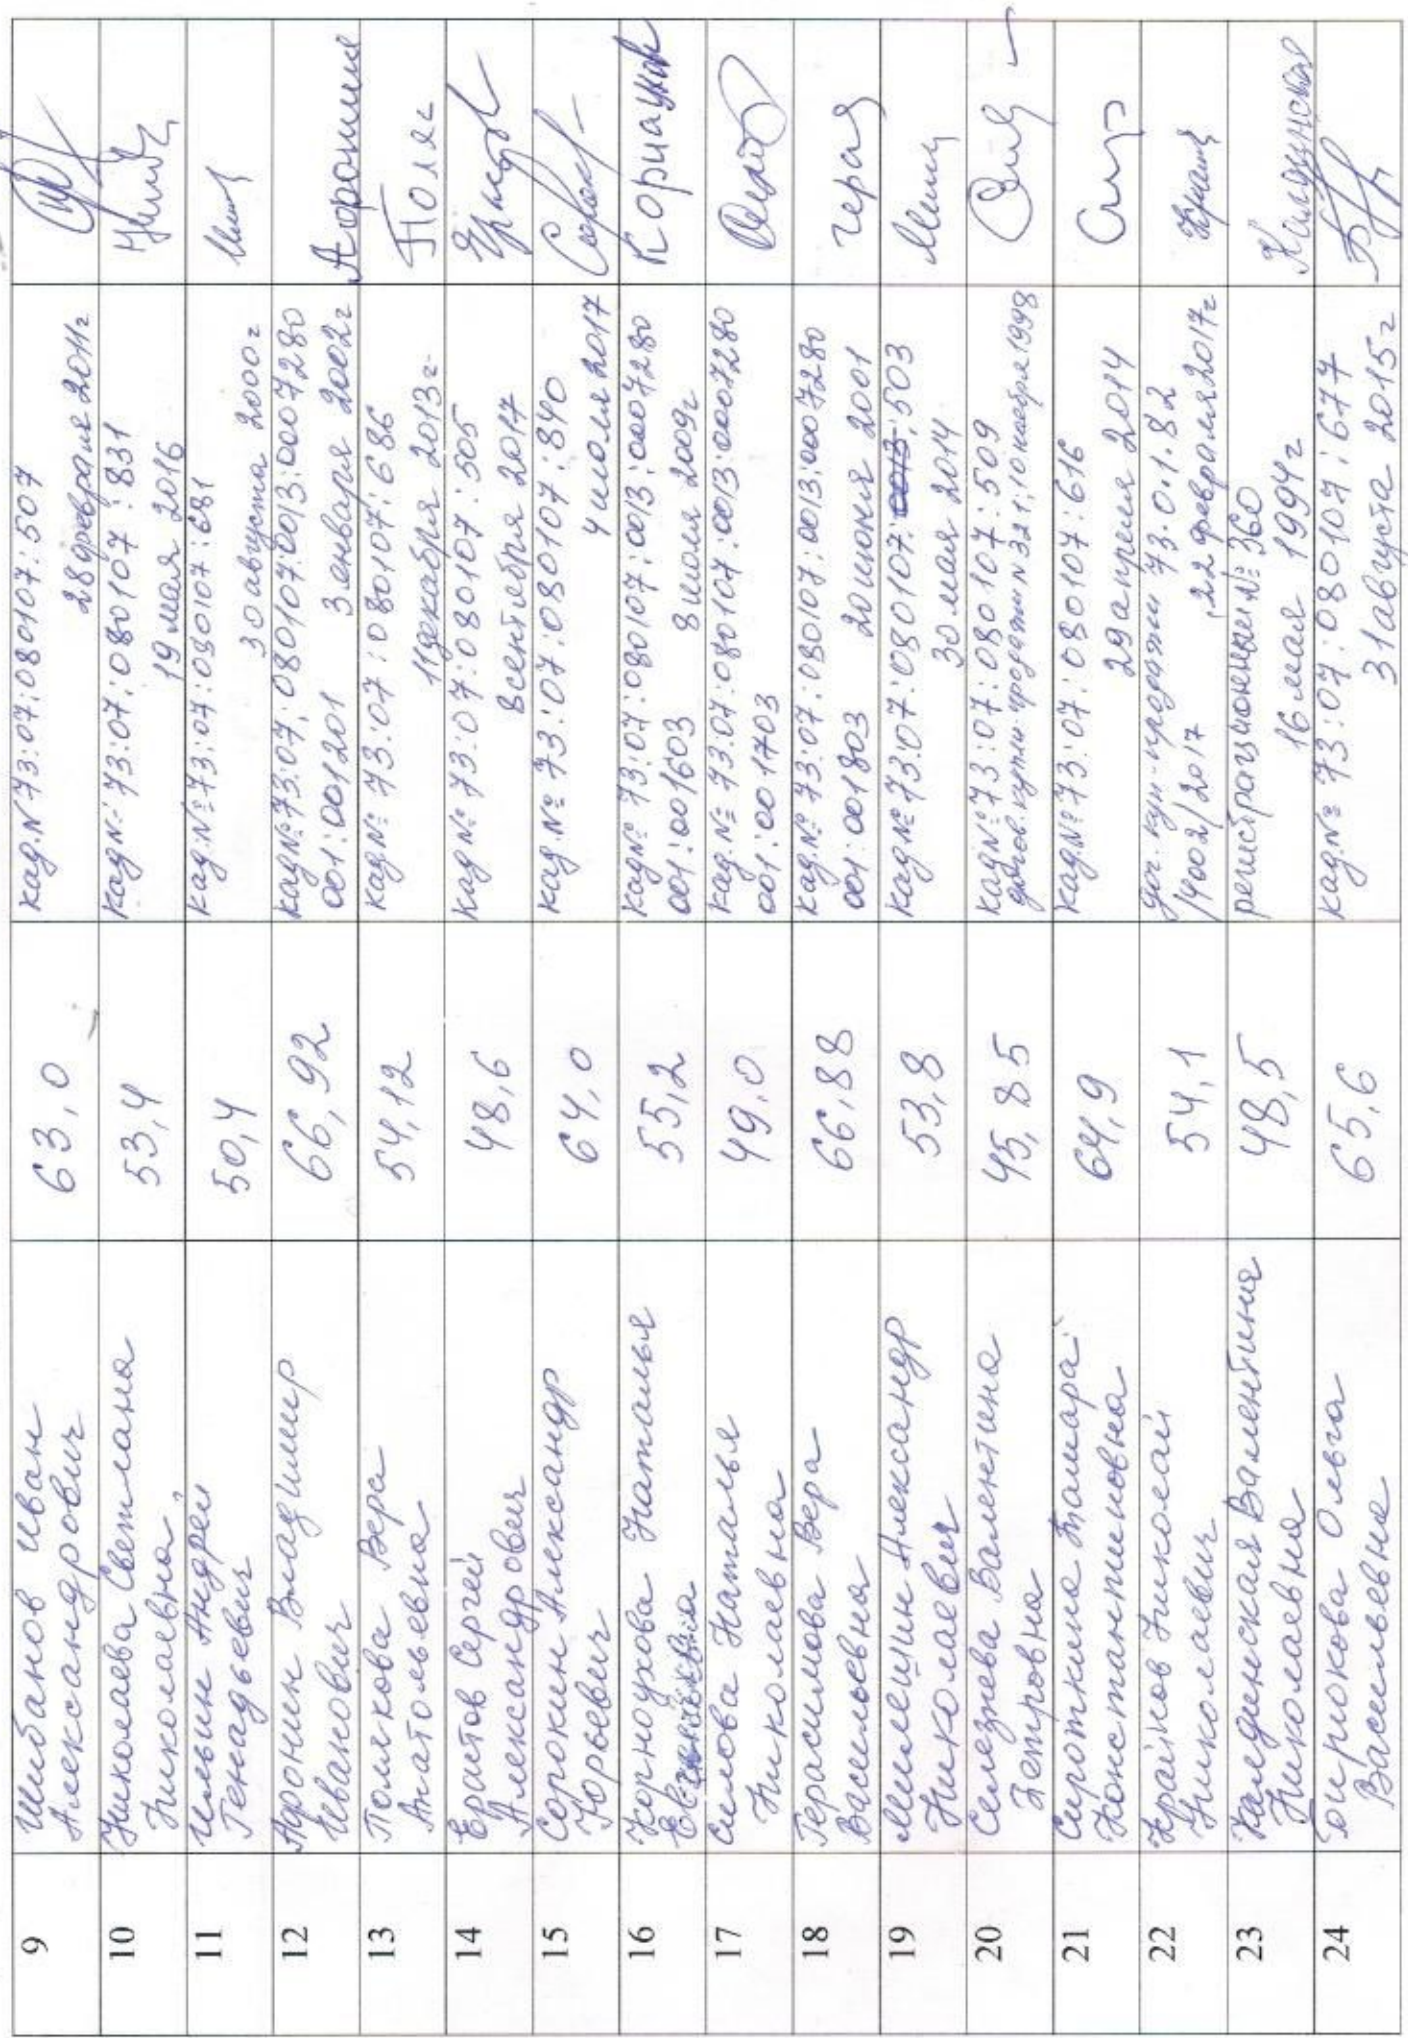 9
Шибанов Иван
Александрович
63,0
кад.N73:07:080107:507
28 февраля 2011г
10
Николаева Светлана
Николаевна
53,4
кад№73:07:080107:831
19 мая 2016
11
Ильин Андрей
Генадьевич
50,4
кад.№73:07:080107:681
30 августа 2000г
12
Афонин Владимир
Иванович
66,92
кад№73:07:080107:0013:0007280
001:001201 3 января 2002г
13
Полякова Вера
Анатольевна
54,12
кад№ 73:07:080107:686
11 декабря 2013г
Поляк
14
Ерастов Сергей
Александрович
48,6
кад№ 73:07:080107:505
8 сентября 2017
15
Сорокин Александр
Юрьевич
64,0
кад.№ 73:07:080107:840
4 июля 2017
16
Корноухова Наталья
55,2
кад№ 73:07:080107:0013:0007280
001:001603 8 июля 2009г
17
Силова Наталья
Николаевна
49,0
кад.№ 73:07:080107:0013:0007280
001:001703
18
Герасимова Вера
Васильевна
66,88
кад.№ 73:07:080107:0013:0007280
001:001803 20 июня 2001
Гера
19
Милешин Александр
Николаевич
53,8
кад№ 73:07:080107:0013:503
30 мая 2014
20
Селезнева Валентина
Петровна
45,85
кад№73:07:080107:509
договор купли-продажи N321; 10 ноября 1998
21
Сироткина Тамара
Константиновна
64,9
кад.№73:07:080107:616
29 апреля 2014
22
Крайнов Николай
Николаевич
54,1
дог. куп-продажи 73.0.1.82
/4002/2017 ,22 февраля 2017г
23
Каледенская Валентина
Николаевна
48,5
регистрационный №360
16 мая 1994г
24
Бирюкова Ольга
Васильевна
65,6
кад.№ 73:07:080107:677
31 августа 2015г